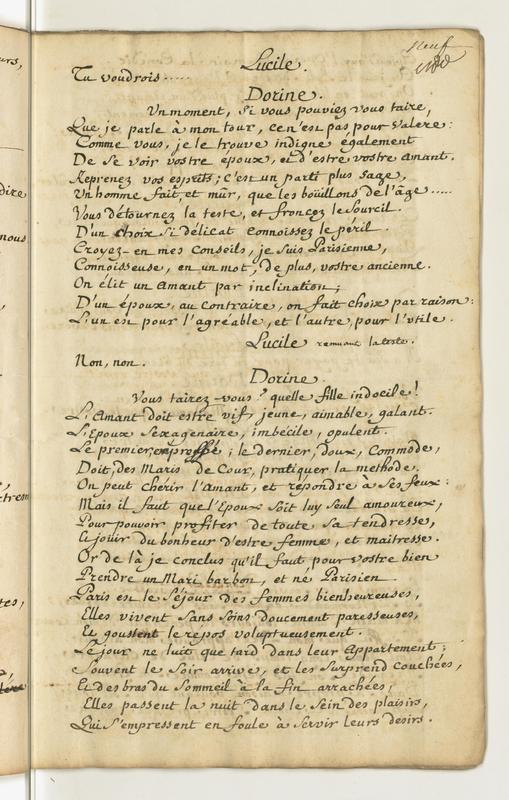 neuf
Lucile.
Tu voudrois.....
Dorine.
Un moment, Si vous pouviez vous taire,
Que je parle à mon tour, ce n'est pas pour Valere:
Comme vous, je le trouve indigne également
De Se voir vostre époux, et d'estre vostre amant.
Reprenez vos esprits; c'est un parti plus sage,
Un homme fait et mûr, que les boüillons de l'âge.....
Vous détournez la teste, et froncez le Sourcil.
D'un choix Si délicat connoissez le péril.
Croyez-en mes Conseils, je Suis Parisienne,
Connoisseuse, en un mot, de plus, vostre ancienne.
On élit un Amant par inclination;
D'un époux, au contraire, on fait choix par raison:
L'un est pour l'agréable, et l'autre pour l'utile.
Lucile remuant la teste.
Non, non.
Dorine.
Vous tairez-vous? quelle fille indocile!
L'Amant doit estre vif, jeune, aimable, galant.
L'Epoux Sexagenaire, imbécile, opulent.
Le premier, empressé; le dernier, doux, Commode,
Doit, des Maris de Cour, pratiquer la methode.
On peut chérir l'Amant, et répondre à Ses feux:
Mais il faut que l'Epoux Soit luy Seul amoureux,
Pour pouvoir profiter de toute Sa tendresse,
Et joüir du bonheur d'estre femme, et maitresse.
Or de là je conclus qu'il faut, pour vostre bien
Prendre un Mari barbon, et né Parisien.
Paris est le Séjour des femmes bienheureuses,
Elles vivent Sans Soins doucement paresseuses,
Et goustent le repos voluptueusement.
Le jour ne luit que tard dans leur Appartement;
Souvent le Soir arrive, et les Surprend Couchées,
Et des bras du Sommeil à la fin arrachées,
Elles passent la nuit dans le Sein des plaisirs,
Qui S'empressent en foule à Servir leurs desirs.